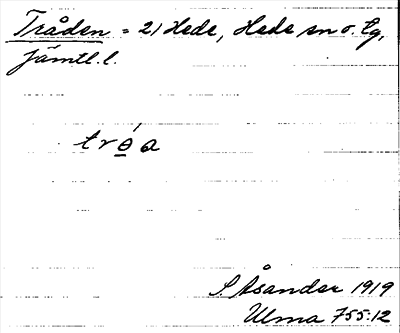 Tråden = 2) Hede, Hede sn o. tg,
Jämtl. l.
tro̲´a
S. Åsander 1919
Ulma 755:12